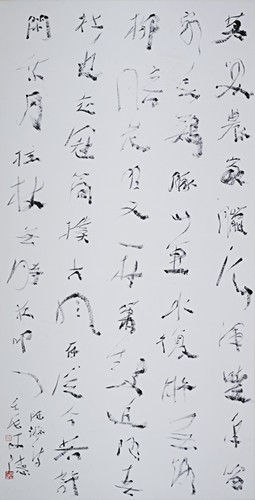 莫笑農家臘酒渾豐年留
客足雞豚山重水複疑無路
柳暗花明又一村簫鼓追隨春
社近衣冠簡樸古風存從今若許
閑乘月拄杖無時夜叩門
陸游詩